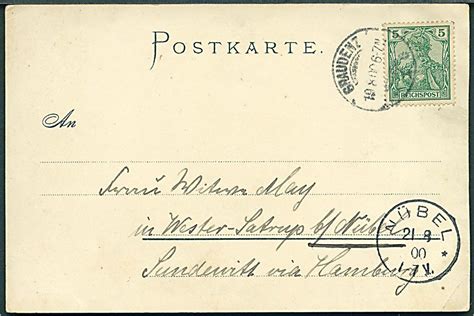 POSTKARTE.
5 5
REICHSPOST
GRAUDENZ
An
Frau Witwe May
in Wester-Satrup b/Nübel
Sundewitt via Hamburg
NÜBEL
21 8
00